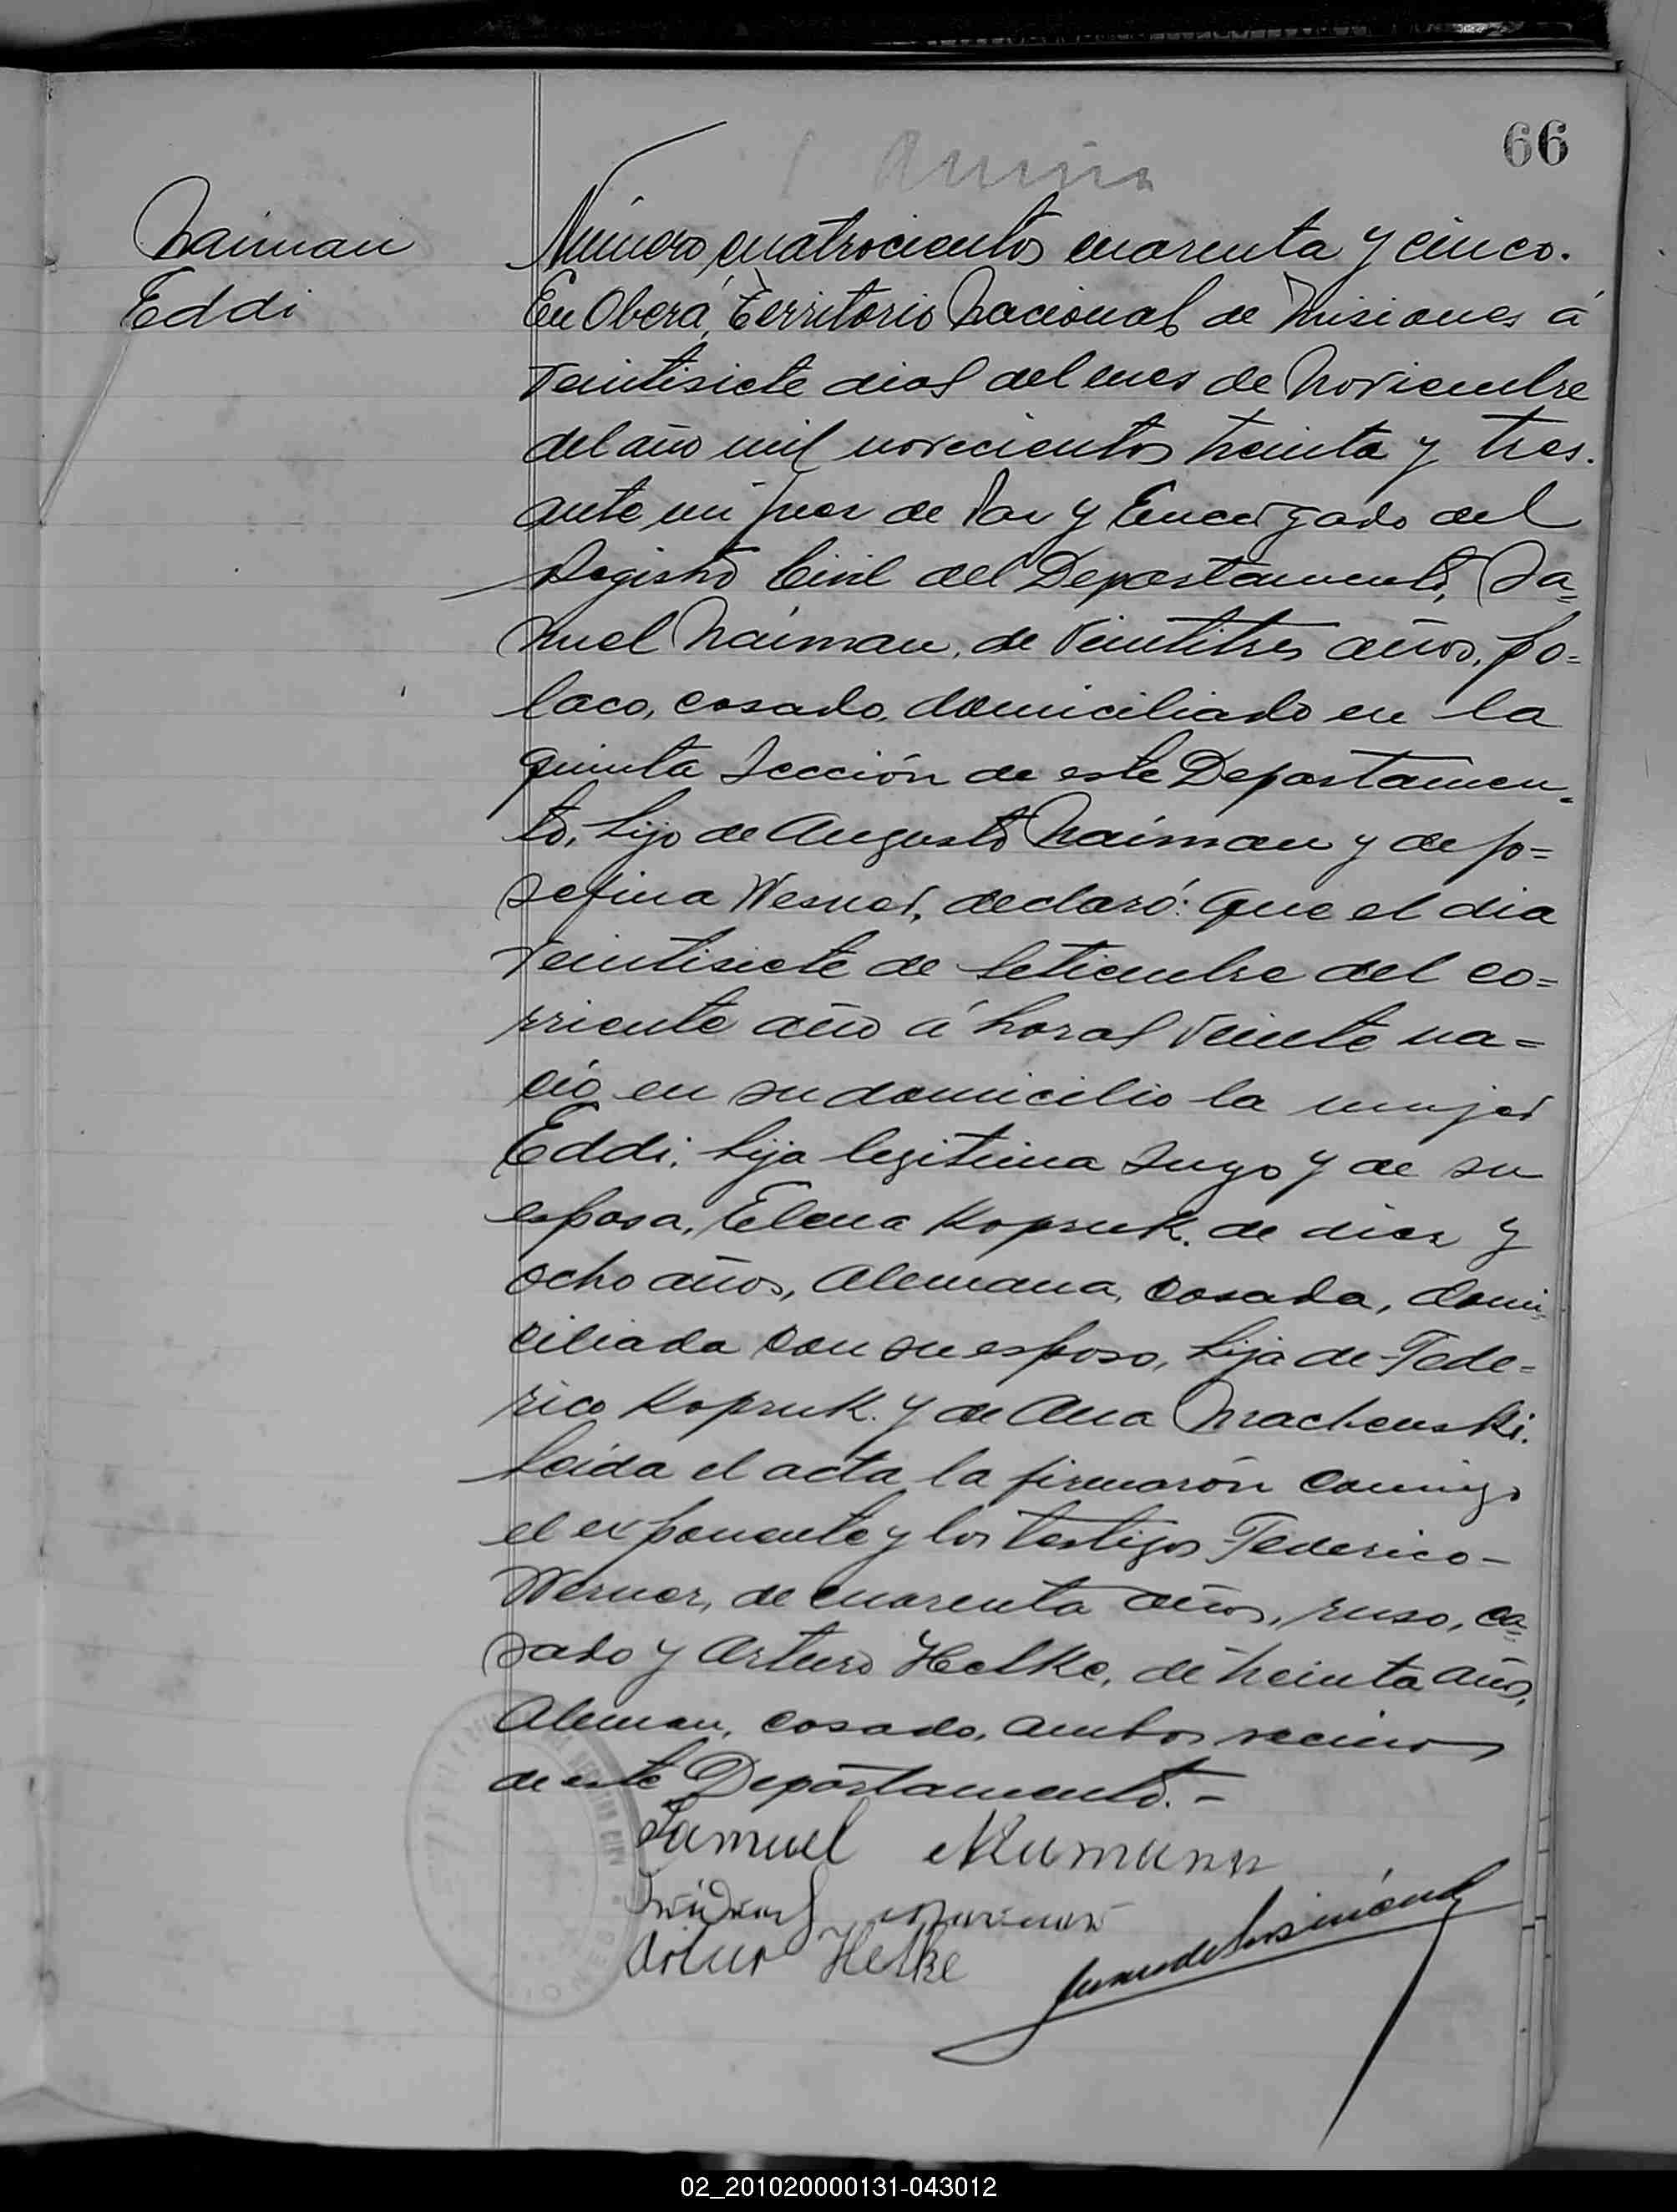 66
Naiman
Eddi
Número cuatrocientos cuarenta y cinco.
En Oberá, Territorio Nacional de Misiones á
veintisiete dias del mes de Noviembre
del año mil novecientos treinta y tres.
ante mi Juez de Paz y Encargado del
Registro Civil del Departamento, Sa=
muel Naiman, de veintitres años, po=
laco, casado, domiciliado en la
quinta Sección de este Departamen=
to, hijo de Augusto Naiman y de Jo=
sefina Wesner, declaró: Que el dia
veintisiete de Setiembre del co=
rriente año á horas veinte na=
ció en su domicilio la mujer
Eddi, hija legitima suya y de su
esposa, Elena Kopruk, de diez y
ocho años, Alemana, casada, domi=
ciliada con su esposo, hija de Fede=
rico Kopruk y de Ana Machenski.
Leida el acta la firmarón conmigo
el exponente y los testigos Federico-
Werner, de cuarenta años, ruso, ca=
sado y Arturo Helke, de treinta años,
Aleman, casado, ambos vecinos
de este Departamento.-
Samuel Naumann
Artur Helke
02_201020000131-043012